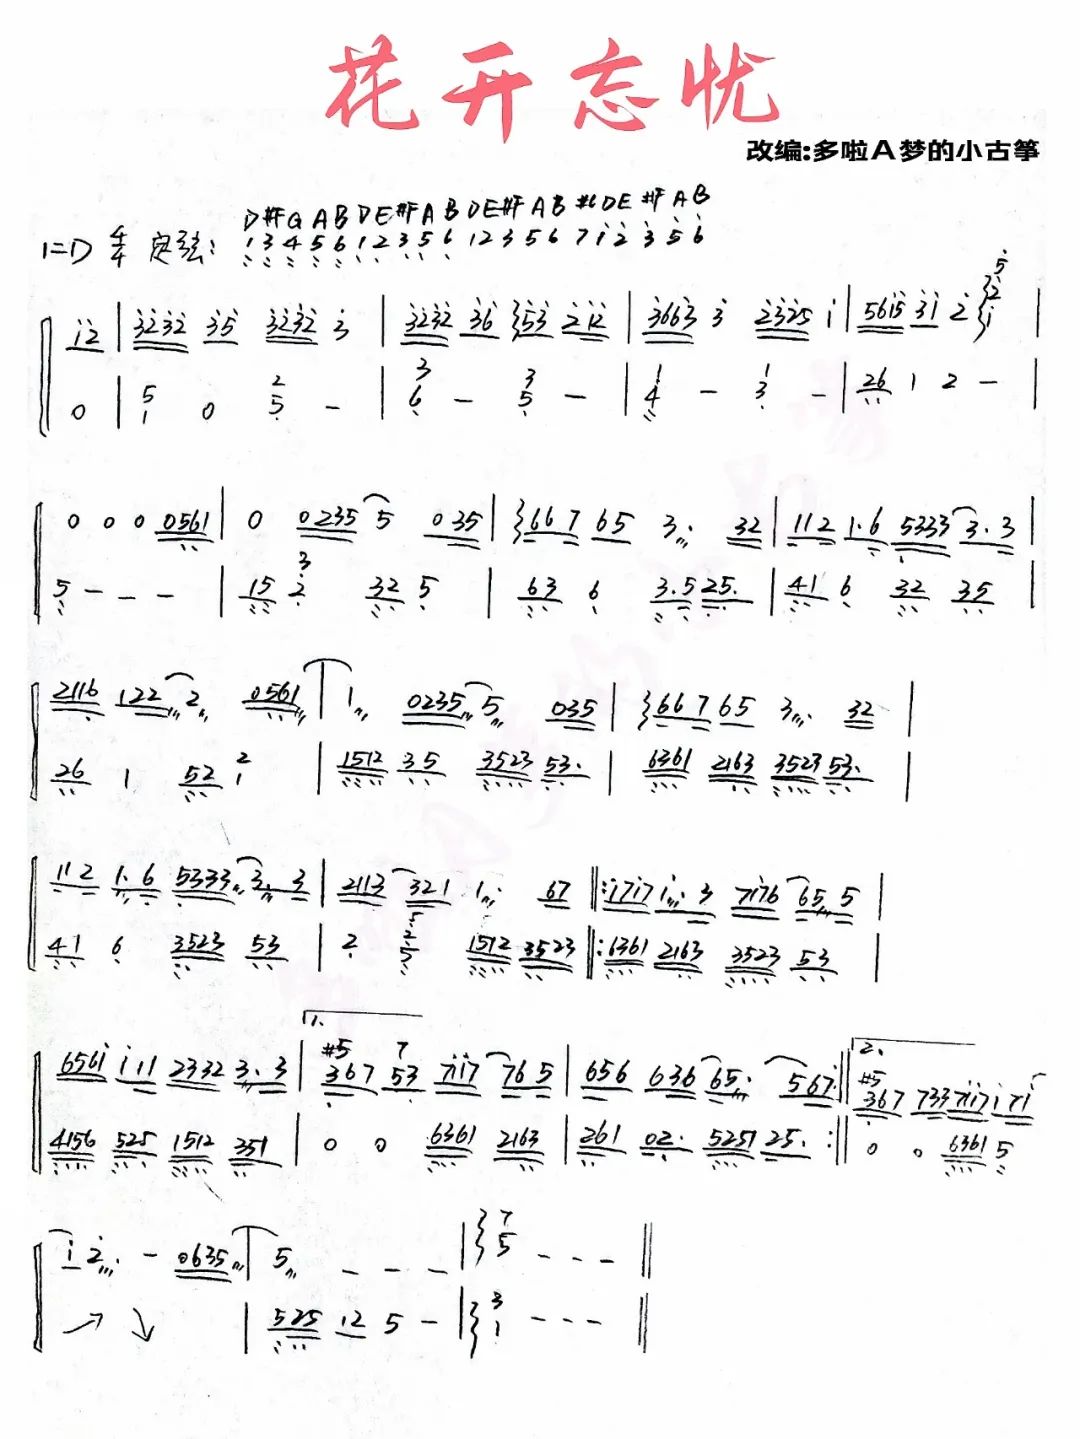 花开忘忧
改编:多啦A梦的小古筝
D #F G A B D E #F A B D E #F A B #C D E #F A B
1=D 4/4 定弦: 1 3 4 5 6 1 2 3 5 6 1 2 3 5 6 7 1 2 3 5 6
12 | 3232 35 3232 3 | 3232 36 53 2 12 | 3663 3 2325 1 | 5615 31 2 1 2 5 |
0 | 1 5 0 5 2 - | 6 3 - 5 3 - | 4 1 - 3 1 - | 26 1 2 - |
0 0 0 0561 | 0 0235 5 035 | 66 7 65 3. 32 | 112 1.6 5333 3.3 |
5 - - - | 15 2 3 32 5 | 63 6 3.5 25. | 41 6 32 35 |
2116 122 2 0561 | 1 0235 5 035 | 66 7 65 3. 32 |
26 1 52 1 2 | 1512 35 3523 53. | 6361 2163 3523 53. |
112 1.6 5333 3. 3 | 2113 321 1. 67 ‖: 1717 1. 3 7176 65 5 |
41 6 3523 53 | 2 7 2 5 1512 3523 ‖: 6361 2163 3523 53 |
6561 111 2332 3.3 | 1. #5 367 7 53 7117 765 | 656 636 65. 567. :‖ 2. #5 367 733 7117 1 71
4156 525 1512 351 | 0 0 6361 2163 | 261 02. 5251 25. :‖ 0 0 6361 5
1 2. - 0635 | 5 - - - | 5 7 - - - ‖
↗ ↘ | 525 12 5 - | 1 3 - - - ‖